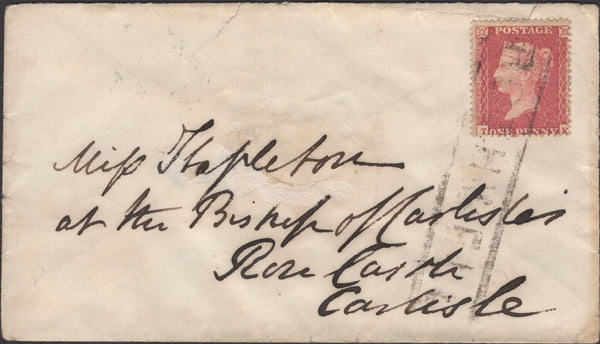 POSTAGE
ONE PENNY
Miss Stapleton
at the Bishop of Carlisle's
Rose Castle
Carlisle